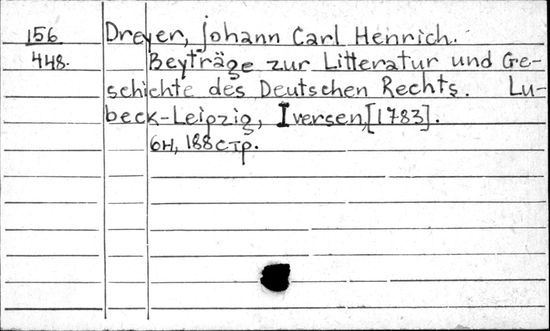 156 Dreyer, Johann Carl Henrich.
448. Beyträge zur Litteratur und Ge-
schichte des Deutschen Rechts. Lu-
beck-Leipzig, Iversen,[1783].
6н, 188 стр.